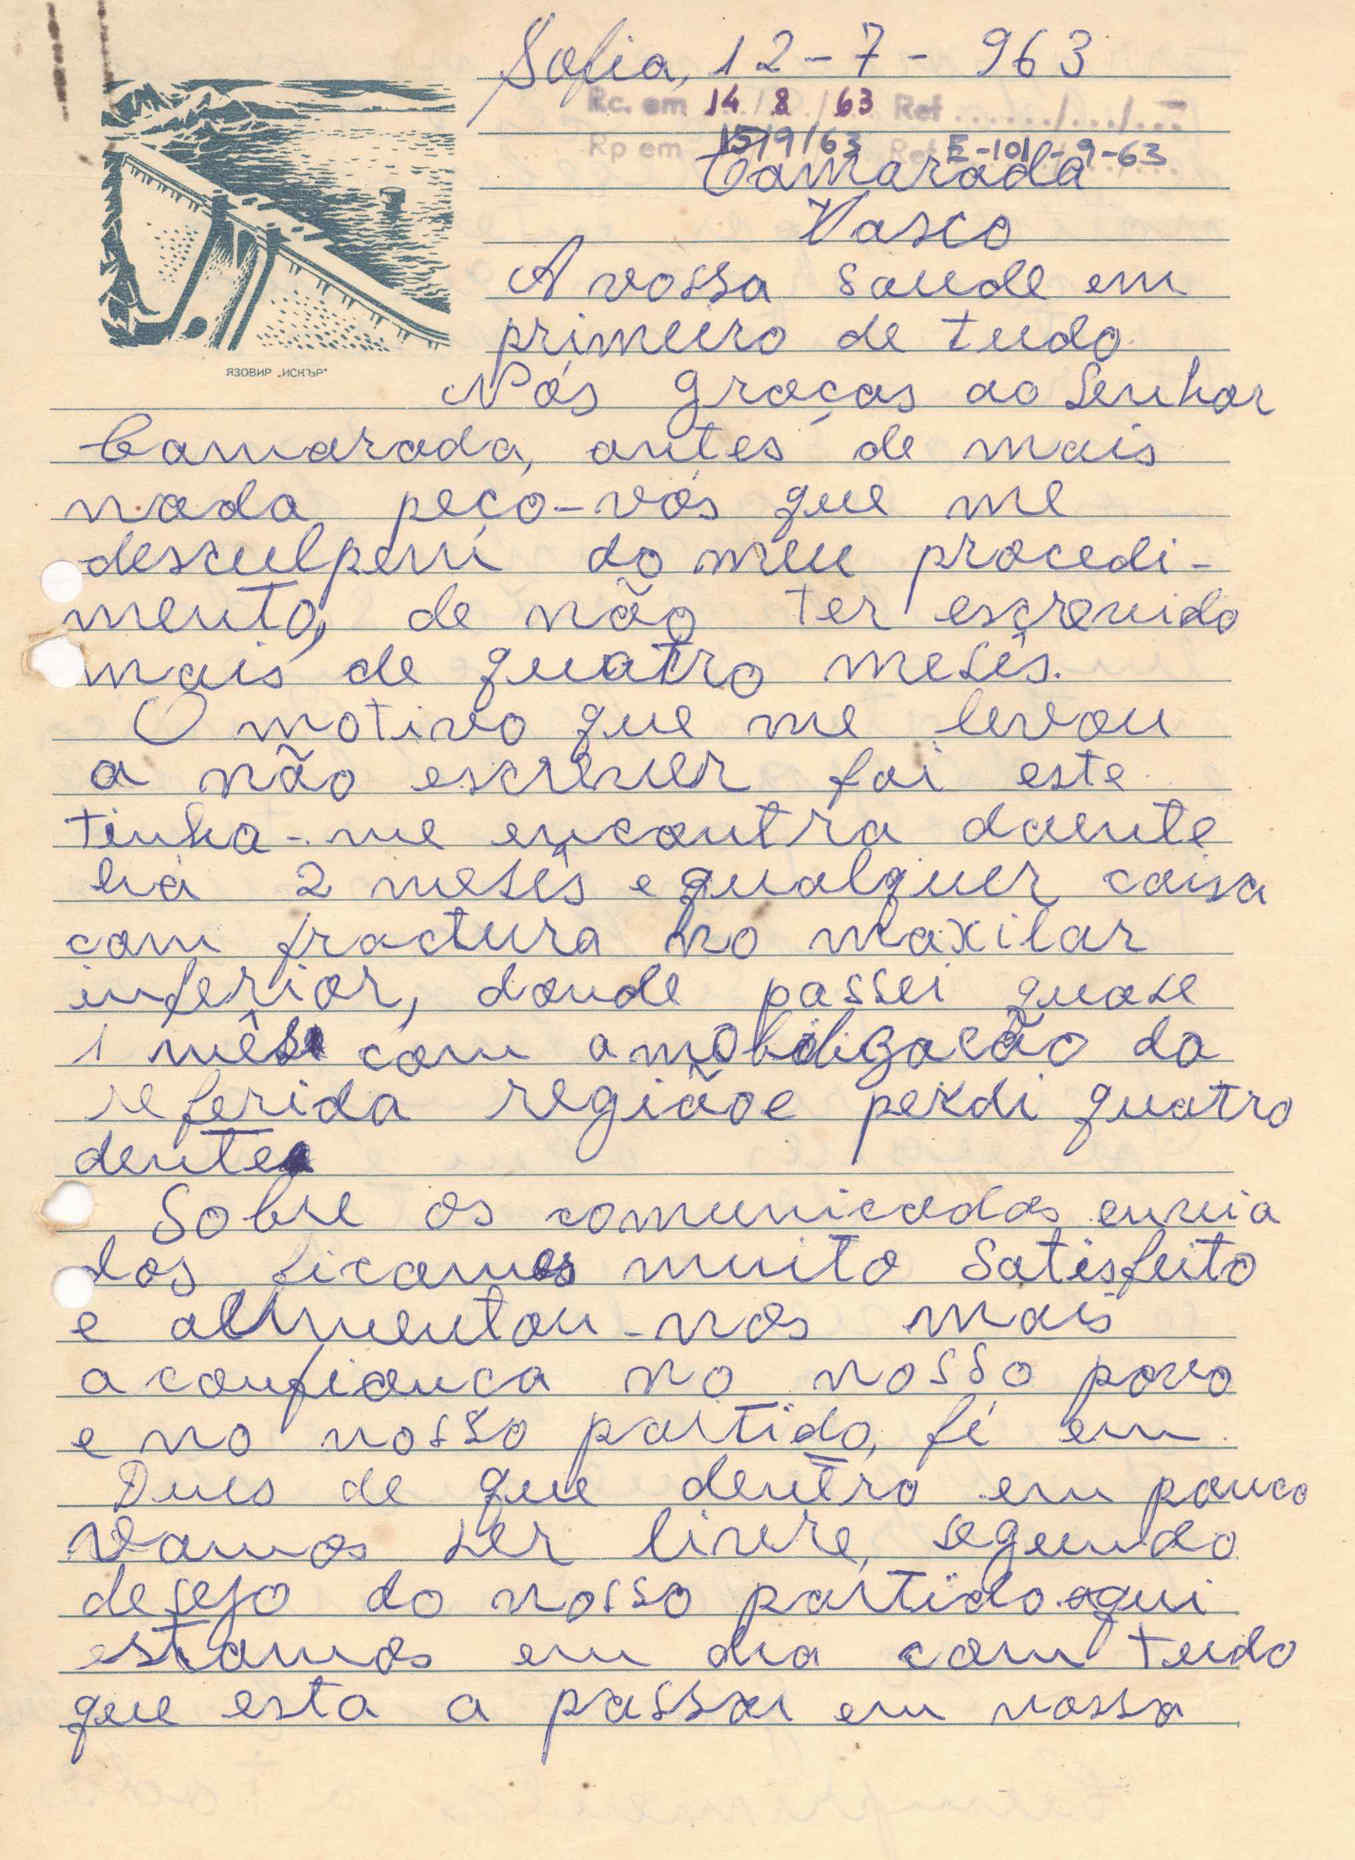 Sofia, 12-7-963
Rc. em 14/8/63 Ref ....../.../...
Rp em 15/9/63 Ref E-101-9-63
Camarada
Vasco
A vossa saude em
primeiro de tudo
ЯЗОВИР „ИСКЪР"
Nós graças ao Senhor
Camarada, antes de mais
nada peço-vós que me
desculpem do meu procedi-
mento, de não ter escrevido
mais de quatro mesês.
O motivo que me levou
a não escrever foi este
tinha-me encontra doente
há 2 mesês e qualquer coisa
com fractura no maxilar
inferior, donde passei quase
1 mês com a mobilização da
referida região e perdi quatro
dentes
Sobre os comunicados envia
dos ficamos muito satisfeito
e aumentou-nos mais
a confiança no nosso povo
e no nosso partido, fé em
Dues de que dentro em pouco
vamos ser livre, segundo
desejo do nosso partido aqui
estamos em dia com tudo
que esta a passar em nossa